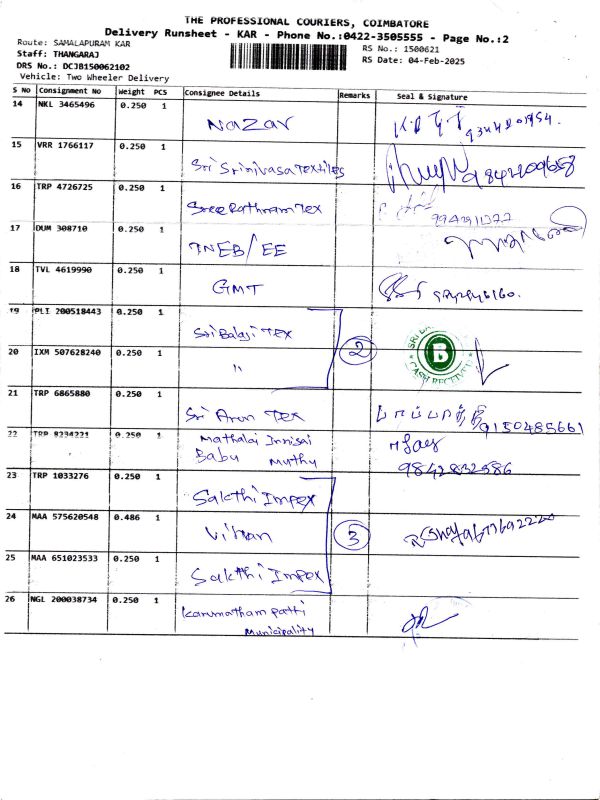 THE PROFESSIONAL COURIERS, COIMBATORE
Delivery Runsheet - KAR - Phone No.:0422-3505555 - Page No.:2
Route: SAMALAPURAM KAR
Staff: THANGARAJ
DRS No.: DCJB150062102
Vehicle: Two Wheeler Delivery
RS No.: 1500621
RS Date: 04-Feb-2025
S No Consignment No Weight PCS Consignee Details Remarks Seal & Signature
14 NKL 3465496 0.250 1 Nazar
15 VRR 1766117 0.250 1 Sri Srinivasa Textiles
16 TRP 4726725 0.250 1 Sree Rathnam Tex
17 DUM 308710 0.250 1 TNEB/EE
18 TVL 4619990 0.250 1 GMT
19 PLI 200518443 0.250 1 Sri Balaji Tex
20 IXM 507628240 0.250 1 " 2 B
21 TRP 6865880 0.250 1 Sri Arun Tex 9150485661
22 TRP 8234221 0.250 1 Mathalai Innisai
Babu Muthu 9842832586
23 TRP 1033276 0.250 1 Sakthi Impex
24 MAA 575620548 0.486 1 3
25 MAA 651023533 0.250 1 Sakthi Impex
26 NGL 200038734 0.250 1 Karumatham patti
Municipality